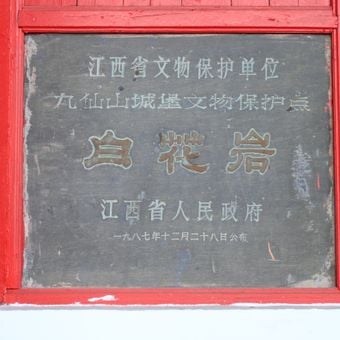 江西省文物保护单位
九仙山城堡文物保护点
白花岩
江西省人民政府
一九八七年十二月二十八日公布